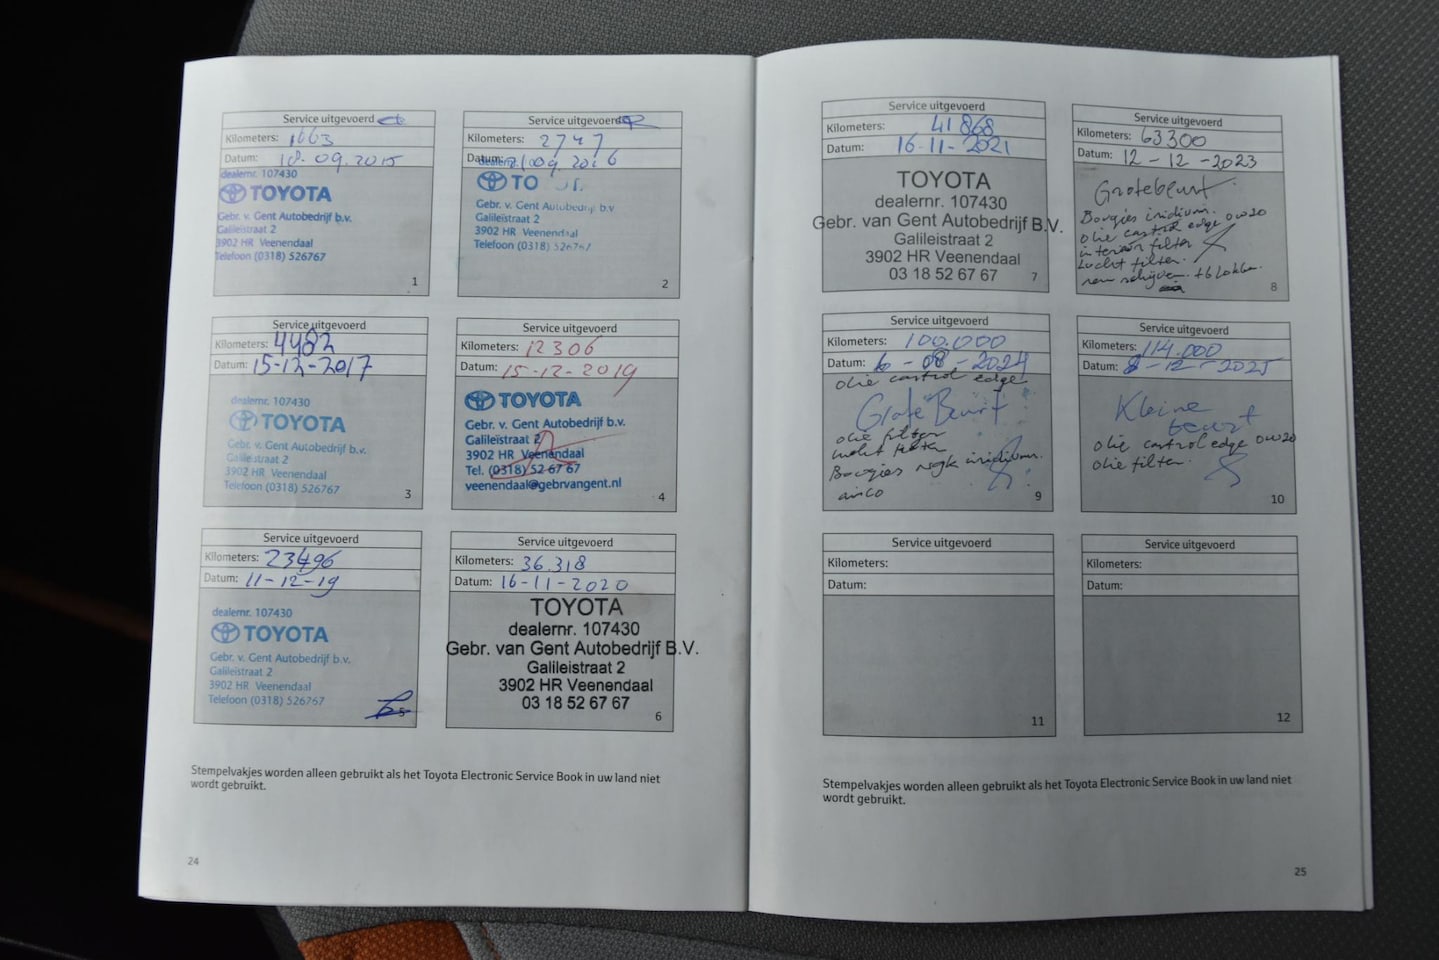 Service uitgevoerd
Kilometers: 1663
Datum: 18.09.2015
dealernr. 107430
TOYOTA
Gebr. v. Gent Autobedrijf b.v.
Galileïstraat 2
3902 HR Veenendaal
Telefoon (0318) 526767
1
Service uitgevoerd
Kilometers: 2747
Datum: 09.2016
dealernr.
TO
Gebr. v. Gent Autobedrijf b.v
Galileïstraat 2
3902 HR Veenendaal
Telefoon (0318) 526767
2
Service uitgevoerd
Kilometers: 4482
Datum: 15-12-2017
dealernr. 107430
TOYOTA
Gebr. v. Gent Autobedrijf b.v.
Galileïstraat 2
3902 HR Veenendaal
Telefoon (0318) 526767
3
Service uitgevoerd
Kilometers: 12306
Datum: 15-12-2019
TOYOTA
Gebr. v. Gent Autobedrijf b.v.
Galileïstraat 2
3902 HR Veenendaal
Tel. (0318) 52 67 67
veenendaal@gebrvangent.nl
4
Service uitgevoerd
Kilometers: 23496
Datum: 11-12-19
dealernr. 107430
TOYOTA
Gebr. v. Gent Autobedrijf b.v.
Galileïstraat 2
3902 HR Veenendaal
Telefoon (0318) 526767
5
Service uitgevoerd
Kilometers: 36.318
Datum: 16-11-2020
TOYOTA
dealernr. 107430
Gebr. van Gent Autobedrijf B.V.
Galileistraat 2
3902 HR Veenendaal
03 18 52 67 67
6
Stempelvakjes worden alleen gebruikt als het Toyota Electronic Service Book in uw land niet
wordt gebruikt.
24
Service uitgevoerd
Kilometers: 41868
Datum: 16-11-2021
TOYOTA
dealernr. 107430
Gebr. van Gent Autobedrijf B.V.
Galileistraat 2
3902 HR Veenendaal
03 18 52 67 67
7
Service uitgevoerd
Kilometers: 63300
Datum: 12-12-2023
Grotebeurt.
Bougies iridium.
olie castrol edge 0w20
interior filter
Lucht filter.
rem schijven. + blokken.
8
Service uitgevoerd
Kilometers: 100.000
Datum: 6-08-2024
olie castrol edge
Grote Beurt
olie filter
lucht filter
Bougies ngk iridium.
airco
9
Service uitgevoerd
Kilometers: 114.000
Datum: 8-12-2025
Kleine
beurt
olie castrol edge 0w20
olie filter.
10
Service uitgevoerd
Kilometers:
Datum:
11
Service uitgevoerd
Kilometers:
Datum:
12
Stempelvakjes worden alleen gebruikt als het Toyota Electronic Service Book in uw land niet
wordt gebruikt.
25